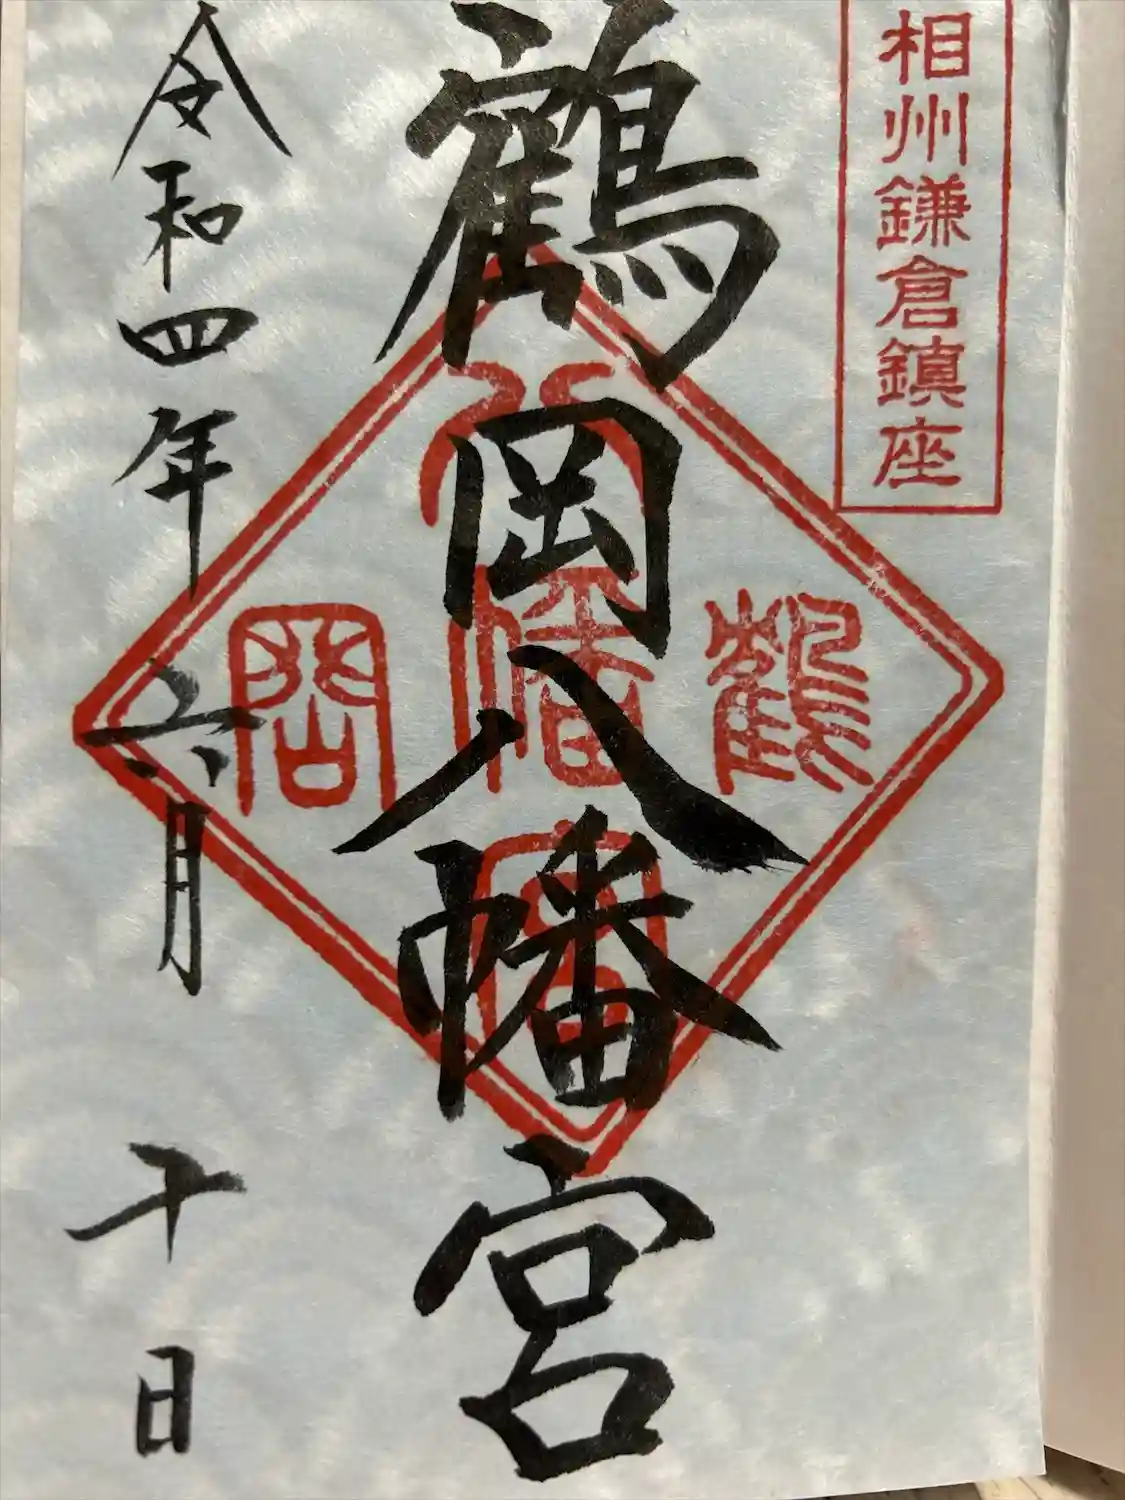 相州鎌倉鎮座
鶴岡八幡宮
八
鶴幡岡
宮
令和四年六月十日